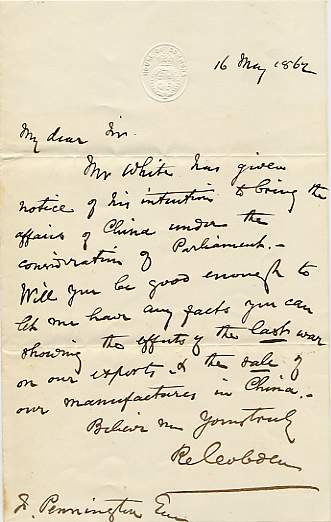 HOUSE OF COMMONS
16 May 1862
My dear Sir.
Mr White has given
notice of his intention to bring the
affairs of China under the
consideration of Parliament. -
Will you be good enough to
let me have any facts you can
showing the effects of the last war
on our exports & the sale of
our manufactures in China. -
Believe me Yours truly
R Cobden
F. Pennington Esq